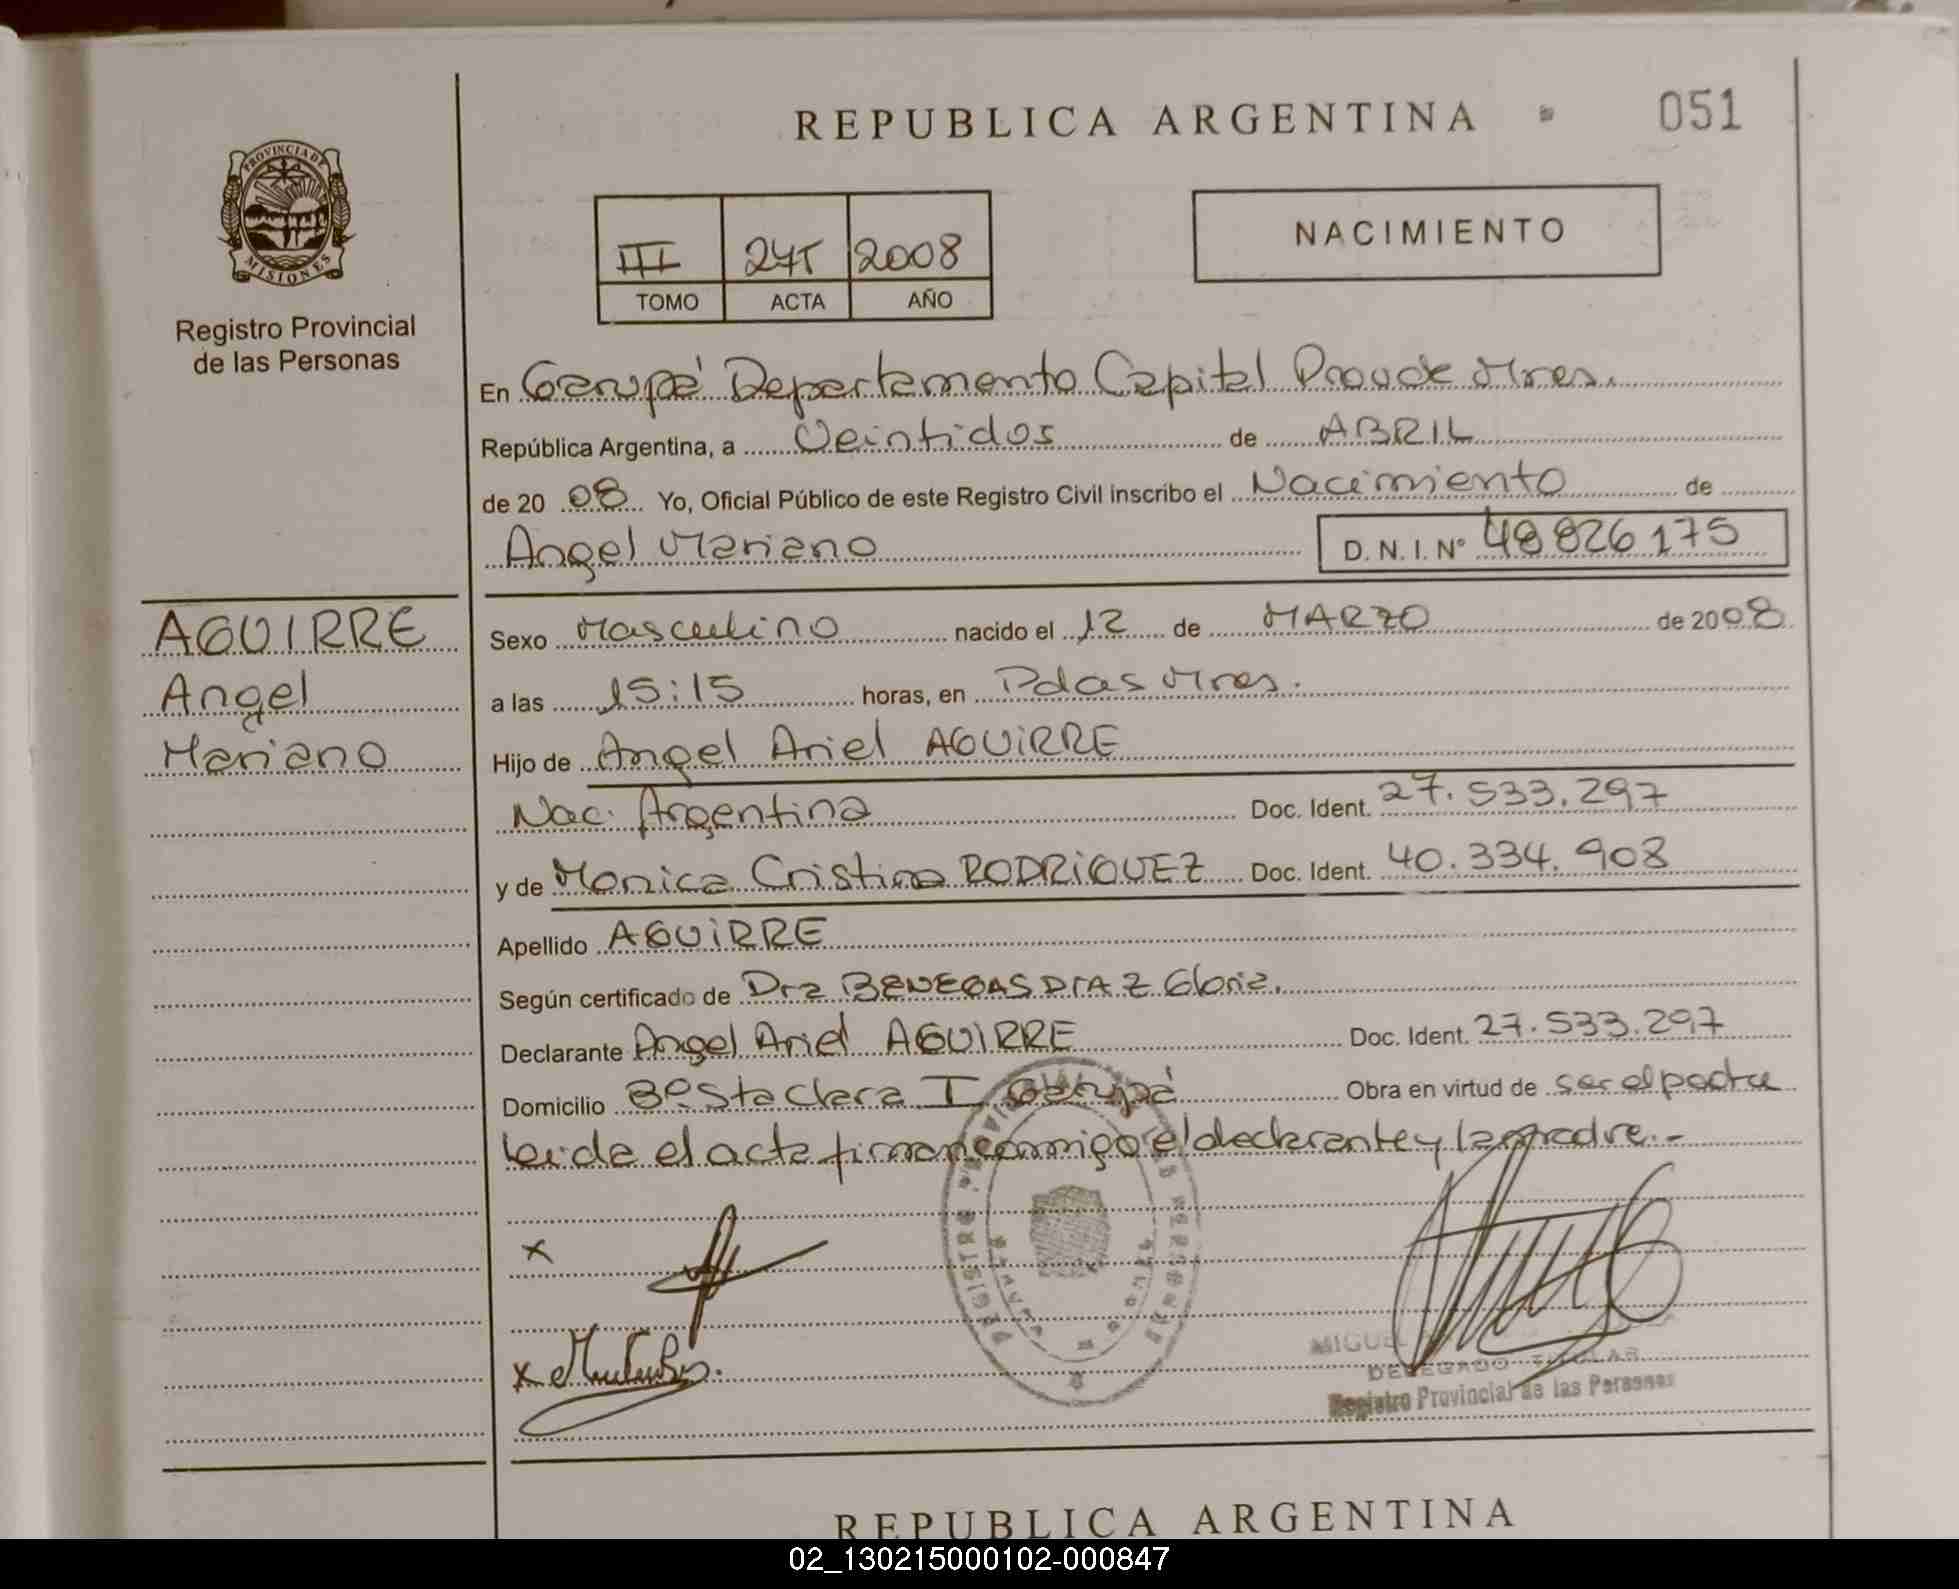 REPUBLICA ARGENTINA
051
PROVINCIA DE
MISIONES
Registro Provincial
de las Personas
III 245 2008
TOMO ACTA AÑO
NACIMIENTO
En Garupá Departamento Capital Prov de Mnes.
República Argentina, a Veintidos de ABRIL
de 2008 Yo, Oficial Público de este Registro Civil inscribo el Nacimiento de
Angel Mariano D.N.I. Nº 48826175
AGUIRRE
Angel
Mariano
Sexo Masculino nacido el 12 de MARZO de 2008
a las 15:15 horas, en Pdas Mnes.
Hijo de Angel Ariel AGUIRRE
Nac. Argentina Doc. Ident. 27.533.297
y de Monica Cristina RODRIGUEZ Doc. Ident. 40.334.908
Apellido AGUIRRE
Según certificado de Dra BENEGAS DIAZ Gloria.
Declarante Angel Ariel AGUIRRE Doc. Ident. 27.533.297
Domicilio Bº Sta Clara I Garupá Obra en virtud de ser el padre
leida el acta firman conmigo el declarante y la madre.-
x
x
MIGUEL
DELEGADO TITULAR
Registro Provincial de las Personas
REPUBLICA ARGENTINA
02_130215000102-000847